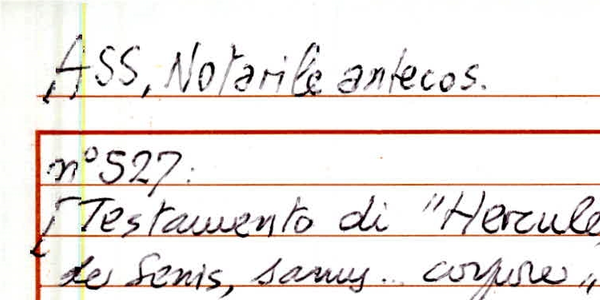 ASS, Notarile antecos.
n° 527:
[Testamento di "Hercule
de Senis, sanus... corpore"